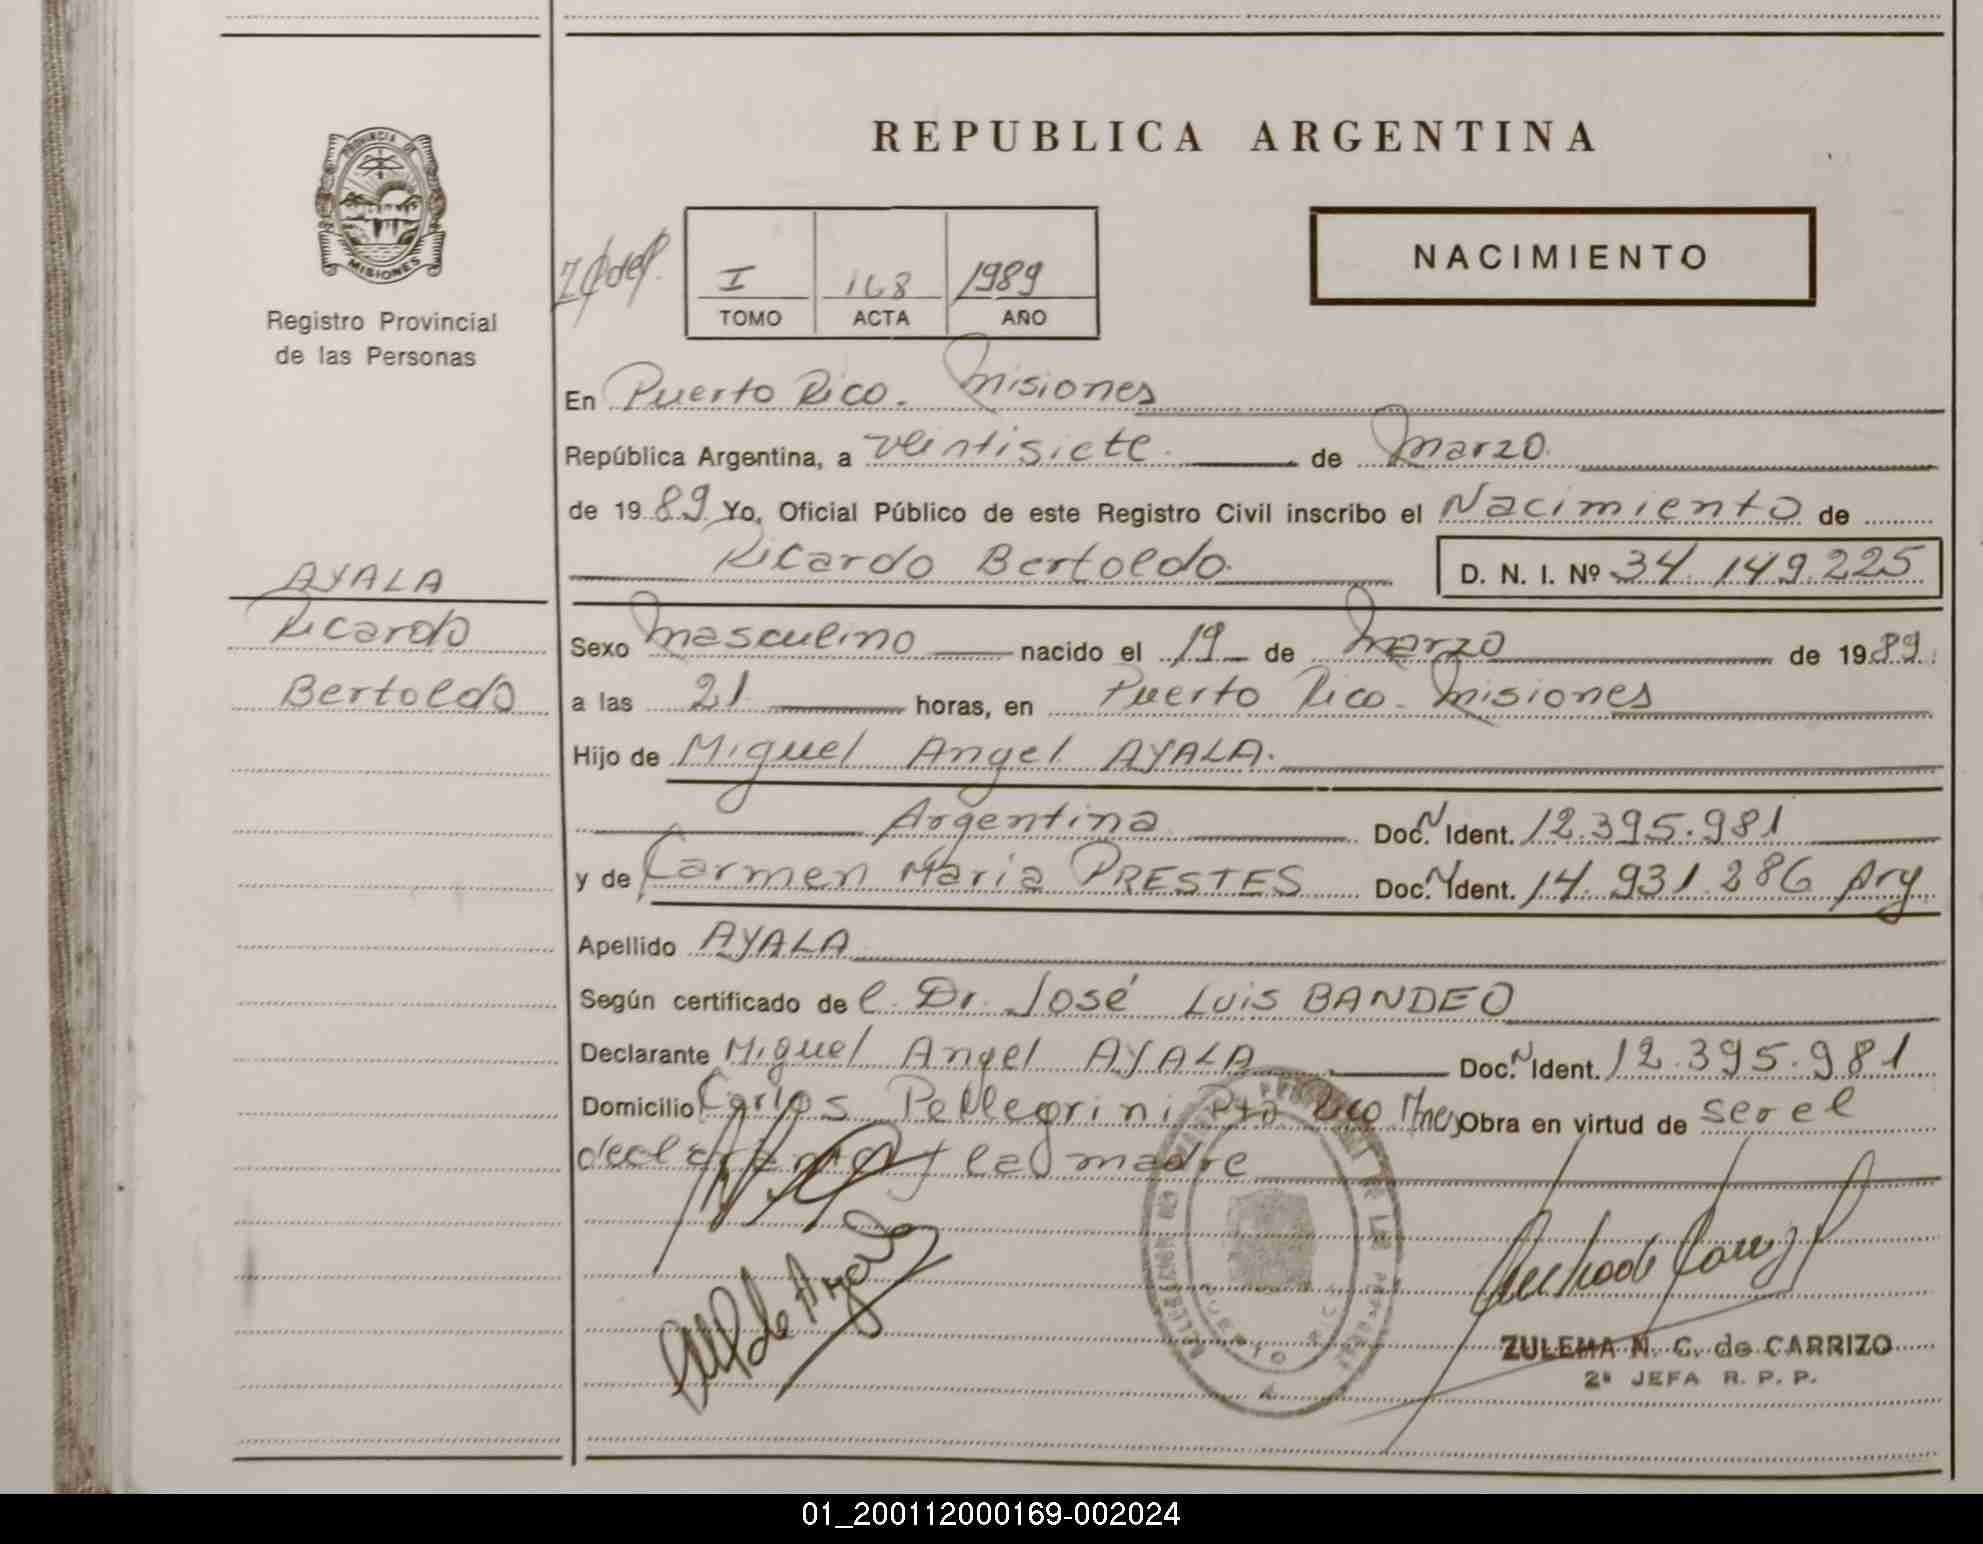 PROVINCIA DE
MISIONES
Registro Provincial
de las Personas
AYALA
Ricardo
Bertoldo
REPUBLICA ARGENTINA
NACIMIENTO
I 168 1989
TOMO ACTA AÑO
En Puerto Rico. Misiones
República Argentina, a veintisiete. de Marzo.
de 1989 Yo, Oficial Público de este Registro Civil inscribo el Nacimiento de
Ricardo Bertoldo. D. N. I. Nº 34.149.225
Sexo Masculino nacido el 19 de Marzo de 1989
a las 21 horas, en Puerto Rico. Misiones
Hijo de Miguel Angel AYALA.
Argentina Doc. N Ident. 12.395.981
y de Carmen María PRESTES Doc. N Ident. 14.931.286 Arg
Apellido AYALA
Según certificado del Dr. José Luis BANDEO
Declarante Miguel Angel AYALA Doc. N Ident. 12.395.981
Domicilio Carlos Pellegrini Pto Rico Mnes Obra en virtud de ser el
declarante y la madre
ZULEMA N. C. de CARRIZO
2ª JEFA R. P. P.
01_200112000169-002024